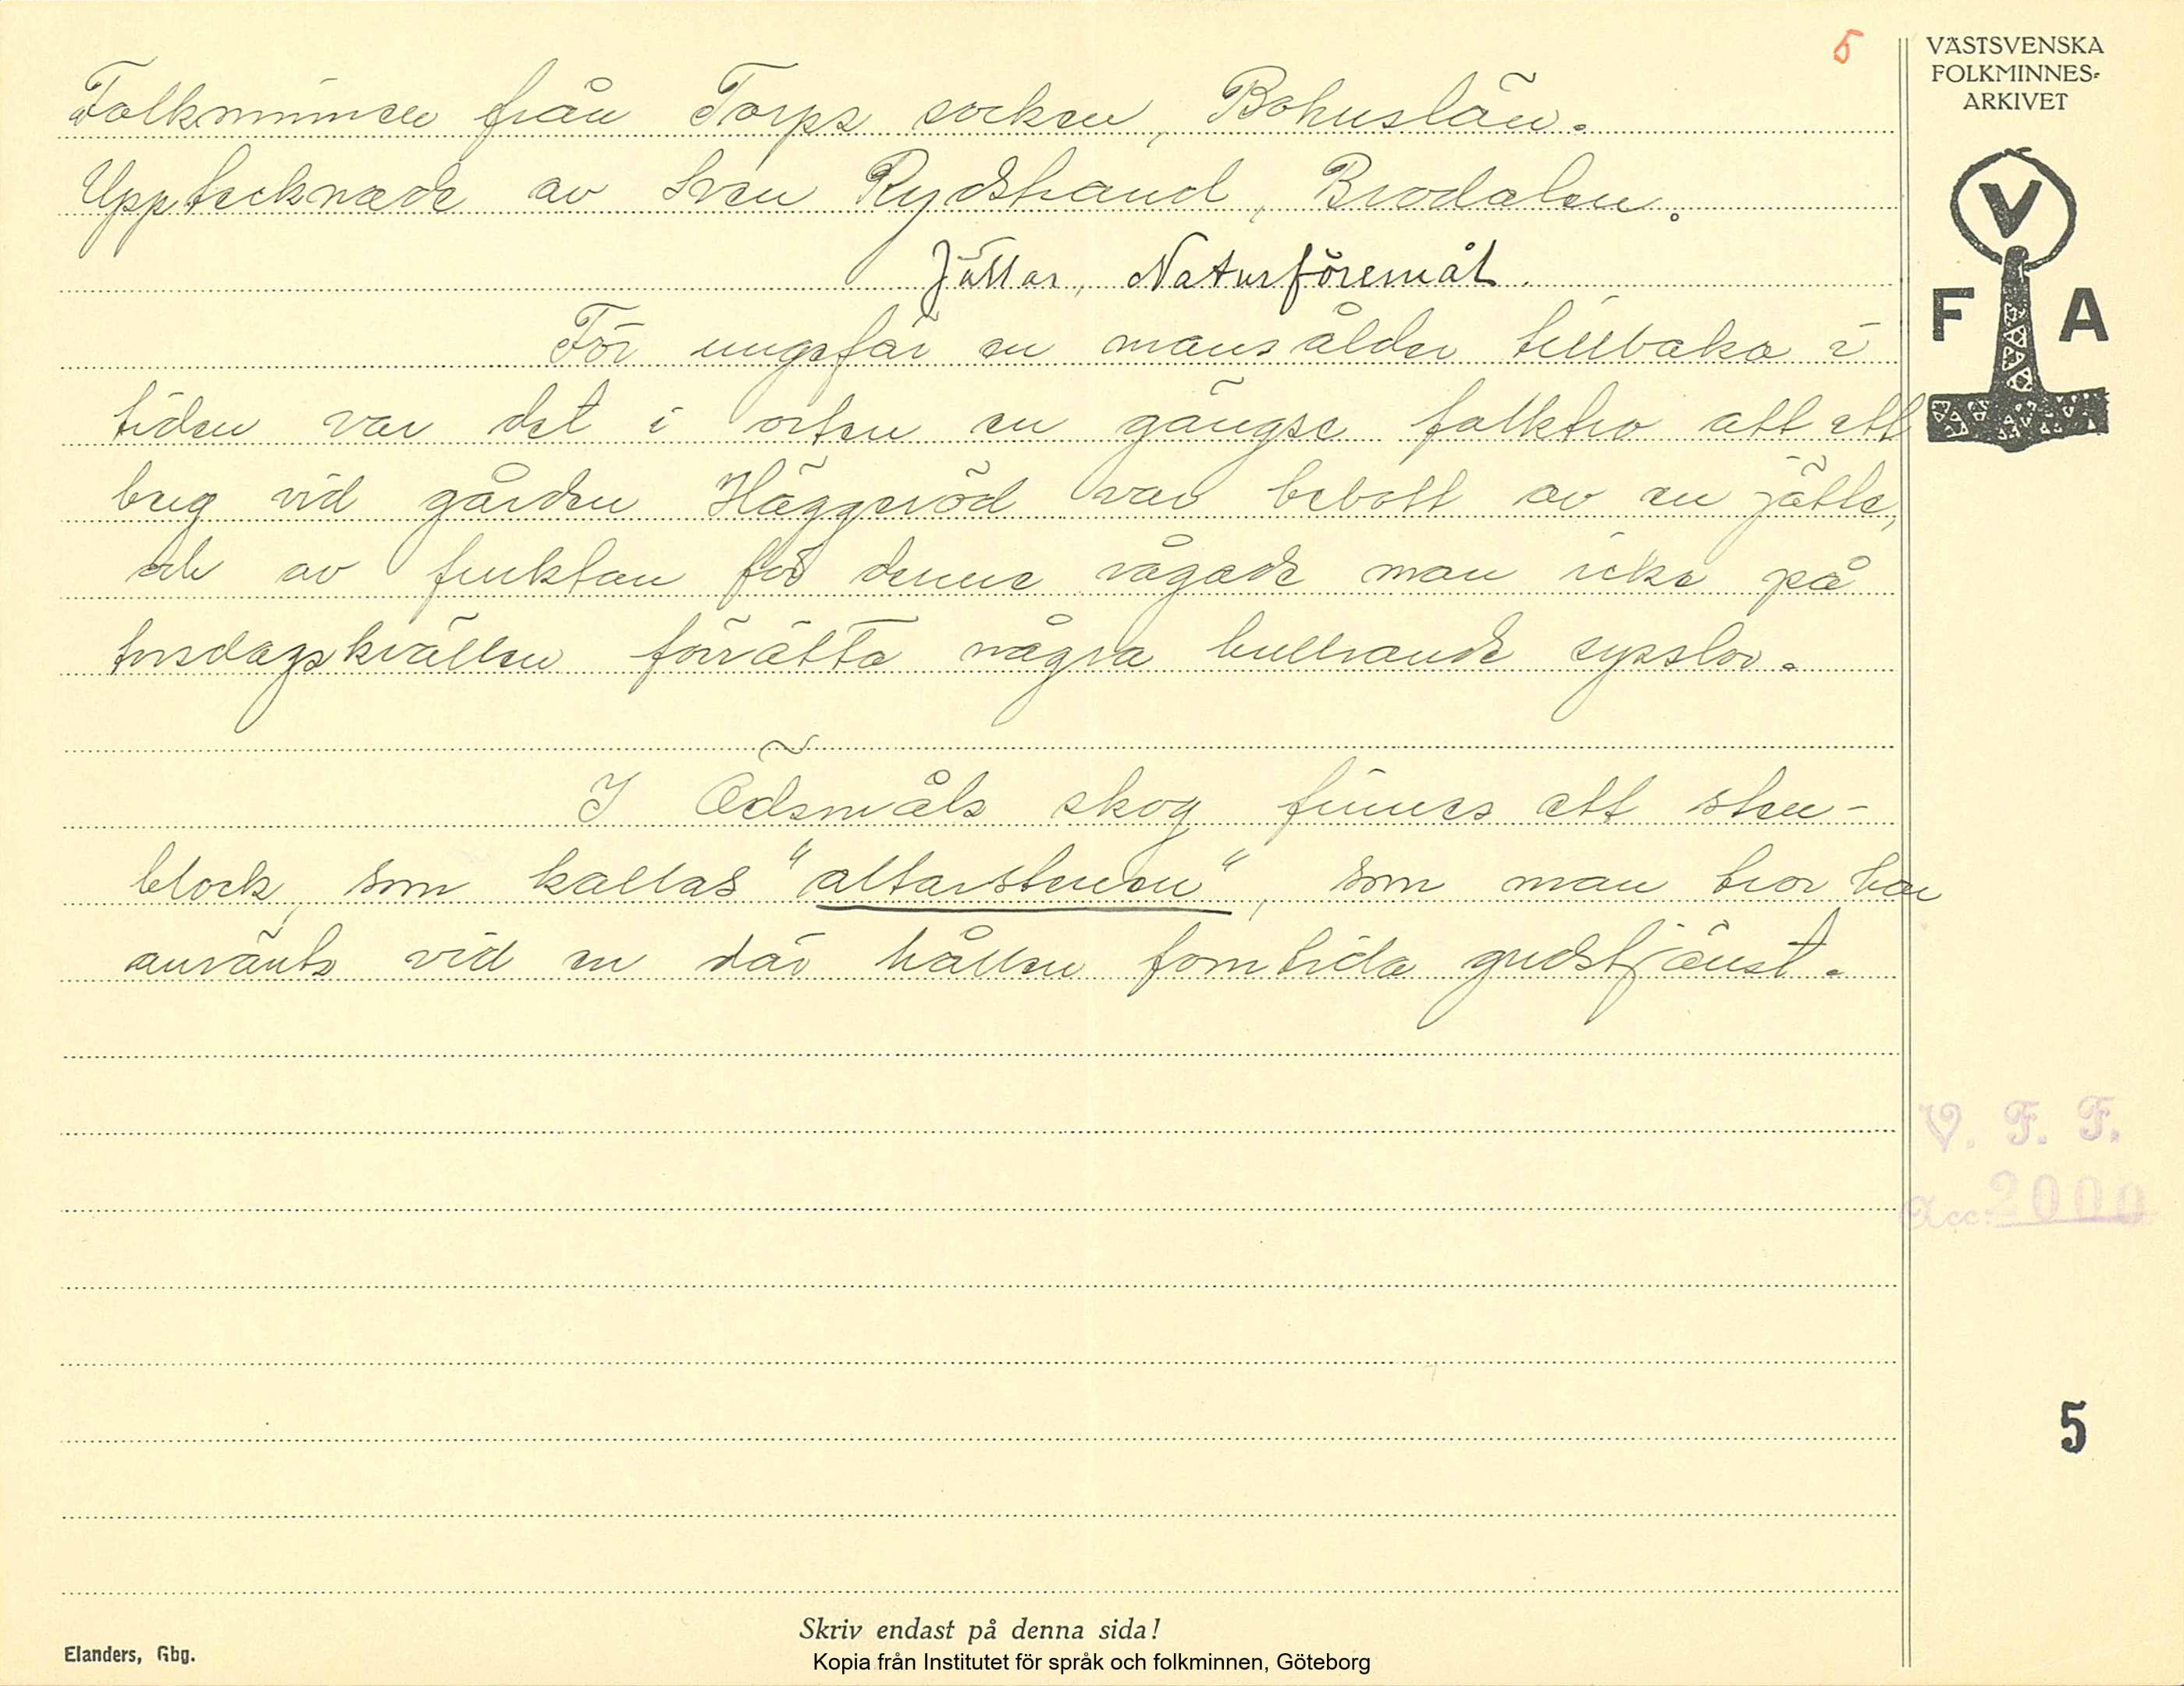 5
VÄSTSVENSKA
FOLKMINNES-
ARKIVET
V
F A
Folkminnen från Torps socken, Bohuslän.
Upptecknade av Sven Rydstrand, Brodalen.
Jättar, Naturföremål.
För ungefär en mansålder tillbaka i
tiden var det i orten en gängse folktro att ett
berg vid gården Häggeröd var bebott av en jätte,
och av fruktan för denne vågade man icke på
torsdagskvällen förrätta några bullrande sysslor.
I Ödsmåls skog finnes ett sten-
block, som kallas "altarstenen", som man tror har
använts vid en där hållen forntida gudstjänst.
V. F. F.
Acc. 2000
5
Skriv endast på denna sida!
Elanders, Gbg.
Kopia från Institutet för språk och folkminnen, Göteborg